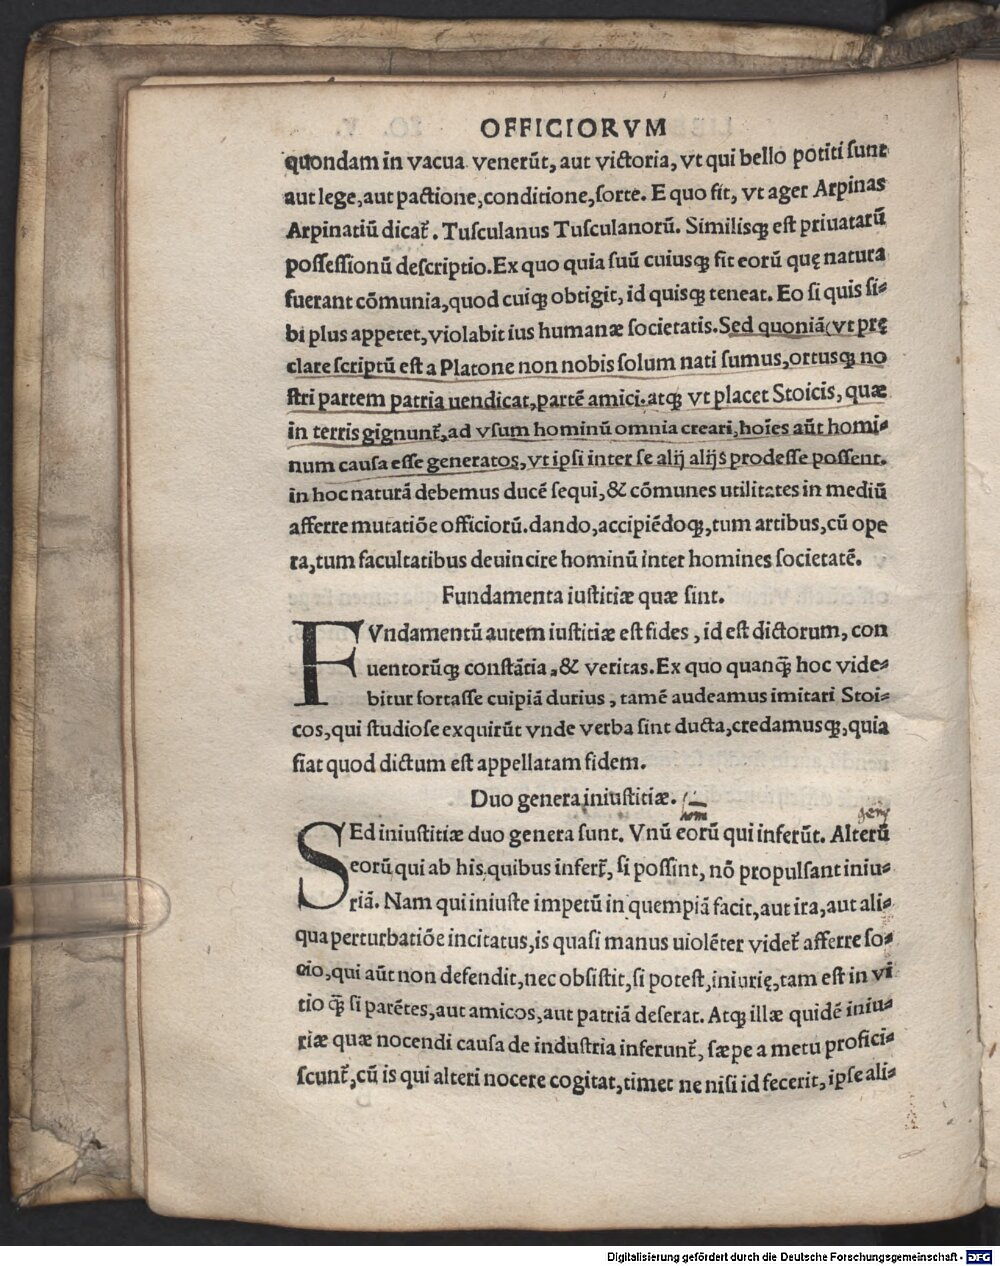 OFFICIORVM
quondam in vacua venerūt, aut victoria, vt qui bello potiti ſunt
aut lege, aut pactione, conditione, ſorte. E quo fit, vt ager Arpinas
Arpinatiū dicat᷑. Tuſculanus Tuſculanorū. Similisqꝫ eſt priuatarū
poſſeſſionū deſcriptio. Ex quo quia ſuū cuiusqꝫ fit eorū quę natura
fuerant cōmunia, quod cuiqꝫ obtigit, id quisqꝫ teneat. Eo ſi quis ſi-
bi plus appetet, violabit ius humanæ ſocietatis. Sed quoniā (vt prę
clare ſcriptū eſt a Platone non nobis ſolum nati ſumus, ortusqꝫ no
ſtri partem patria uendicat, partē amici. atqꝫ vt placet Stoicis, quæ
in terris gignunt᷑, ad vſum hominū omnia creari, hoīes aūt homi-
num cauſa eſſe generatos, vt ipſi inter ſe alij alijs prodeſſe poſſent.
in hoc naturā debemus ducē ſequi, & cōmunes utilitates in mediū
afferre mutatiōe officiorū. dando, accipiēdoqꝫ, tum artibus, cū ope
ra, tum facultatibus deuincire hominū inter homines ſocietatē.
Fundamenta iuſtitiæ quæ ſint.
FVndamentū autem iuſtitiæ eſt fides, id eſt dictorum, con
uentorūqꝫ conſtātia, & veritas. Ex quo quanq̄ hoc vide-
bitur fortaſſe cuipiā durius, tamē audeamus imitari Stoi-
cos, qui ſtudioſe exquirūt vnde verba ſint ducta, credamusqꝫ, quia
fiat quod dictum eſt appellatam fidem.
Duo genera iniuſtitiæ.
hom
SEd iniuſtitiæ duo genera ſunt. Vnū eorū qui inferūt. Alterū
eorū qui ab his quibus infert᷑, ſi poſſint, nō propulſant iniu-
riā. Nam qui iniuſte impetū in quempiā facit, aut ira, aut ali-
qua perturbatiōe incitatus, is quaſi manus uiolēter videt᷑ afferre ſo-
cio, qui aūt non defendit, nec obſiſtit, ſi poteſt, iniurię, tam eſt in vi
tio q̄ ſi parētes, aut amicos, aut patriā deſerat. Atqꝫ illæ quidē iniu-
riæ quæ nocendi cauſa de induſtria inferunt᷑, ſæpe a metu profici-
ſcunt᷑, cū is qui alteri nocere cogitat, timet ne niſi id fecerit, ipſe ali-
Digitalisierung gefördert durch die Deutsche Forschungsgemeinschaft - DFG